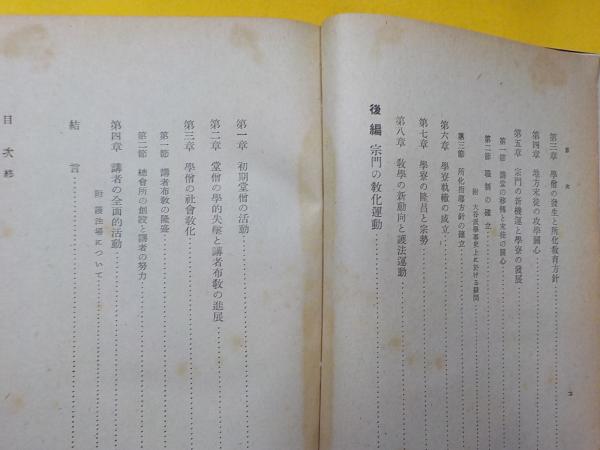 目次
第三章 學僧の發生と所化敎育方針
第四章 地方末徒の攻學關心
第五章 宗門の新機運と學寮の發展
第一節 講堂の移轉と末徒の關心
第二節 職制の確立
第三節 所化指導方針の確立
附 大谷派學事史上に於ける疑問
第六章 學寮軌轍の成立
第七章 學寮の隆昌と宗勢
第八章 敎學の新動向と護法運動
後編 宗門の敎化運動
第一章 初期堂僧の活動
第二章 堂僧の學的失墜と講者布敎の進展
第三章 學僧の社會敎化
第一節 講者布敎の隆盛
第二節 總會所の創設と講者の努力
第四章 講者の全面的活動
附 護法場について
結言
目次終